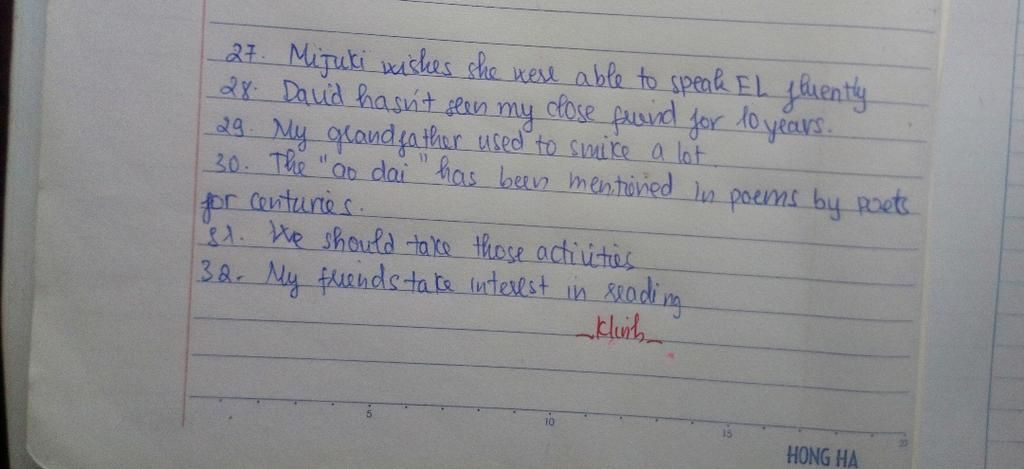 27. Mizuki wishes she were able to speak EL fluently
28. David hasn't seen my close friend for 10 years.
29. My grandfather used to smike a lot.
30. The "ao dai" has been mentioned in poems by poets
for centuries.
31. We should take those activities
32. My friends take interest in reading
5 10 15 20
HONG HA